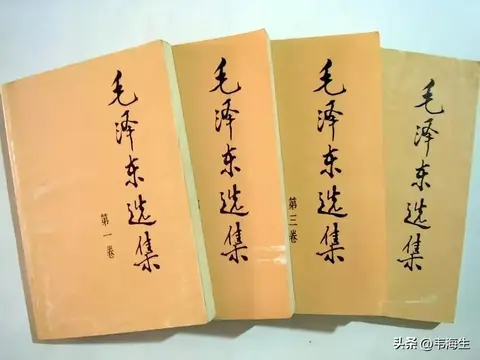 毛泽东选集
第一卷
毛泽东选集
毛泽东选集
第三卷
毛泽东选集
头条@韦海生